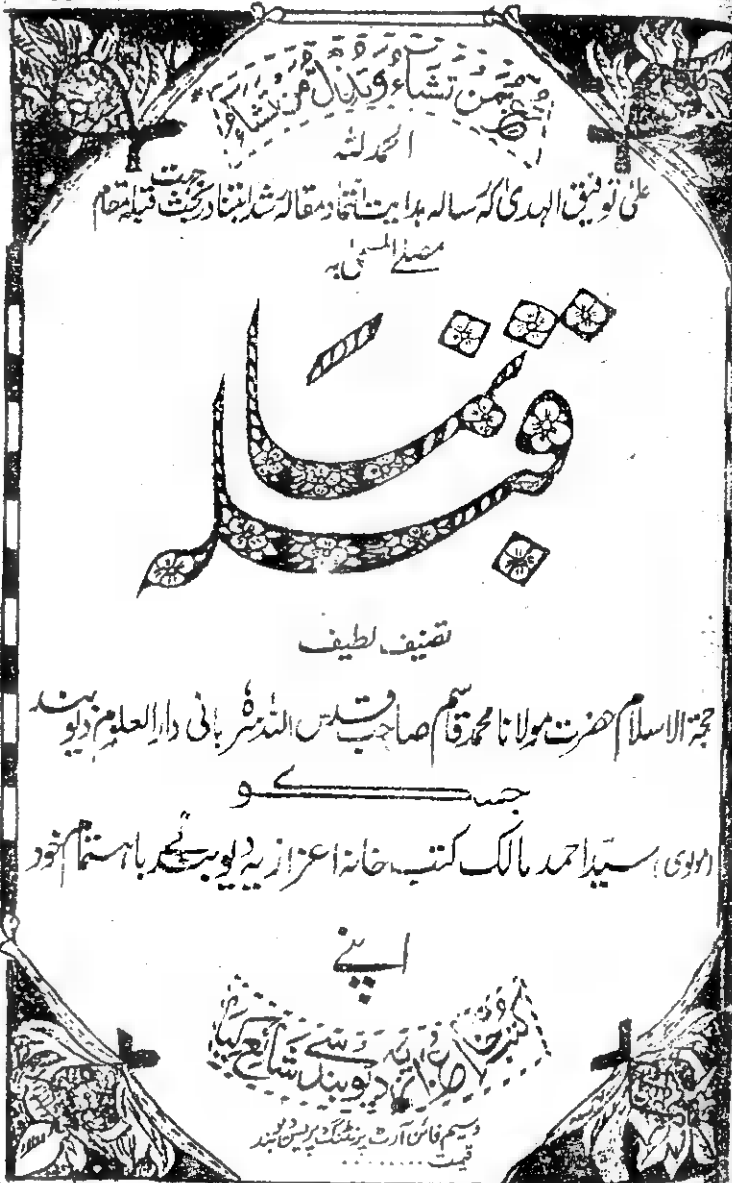 وتعز من تشاء وتذل من تشاء
الحمد للہ
علی توفیق الہدیٰ کہ رسالہ ہدایت انتما مقالہ رشد ابتنا در بحث جہت قبلہ مقام
مصلے المسمیٰ بہ
قبلہ نما
تصنیف لطیف
حجۃ الاسلام حضرت مولانا محمد قاسم صاحب قدس اللہ سرہٗ بانی دارالعلوم دیوبند
جس کو
(مولوی) سید احمد مالک کتب خانہ اعزازیہ دیوبند نے باہتمام خود
اپنے
کتب خانہ اعزازیہ دیوبند سے شائع کیا
وسیم فائن آرٹ پرنٹنگ پریس دیوبند
قیمت ........